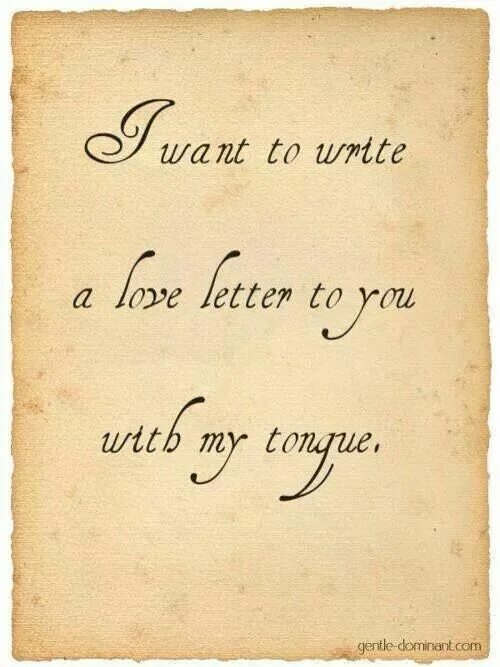 I want to write
a love letter to you
with my tongue.
gentle-dominant.com